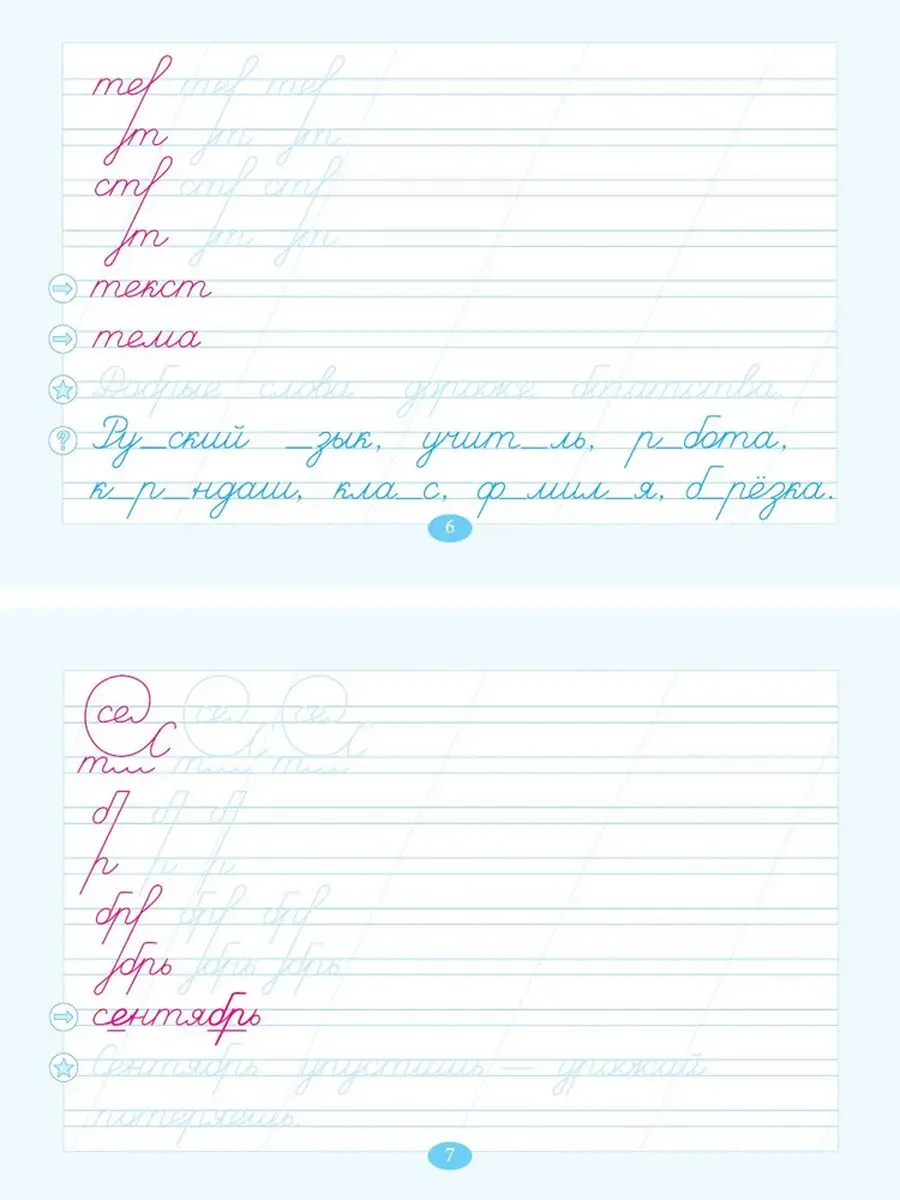 те те те
т т т
ст ст ст
т т т
текст
тема
Добрые слова дороже богатства.
Ру_ский _зык, учит_ль, р_бота,
к_р_ндаш, кла_с, ф_мил_я, б_рёзка.
6
се се се
С С С
т т т
б б б
р р р
бр бр бр
брь брь брь
сентябрь
Сентябрь упустишь — урожай
потеряешь.
7